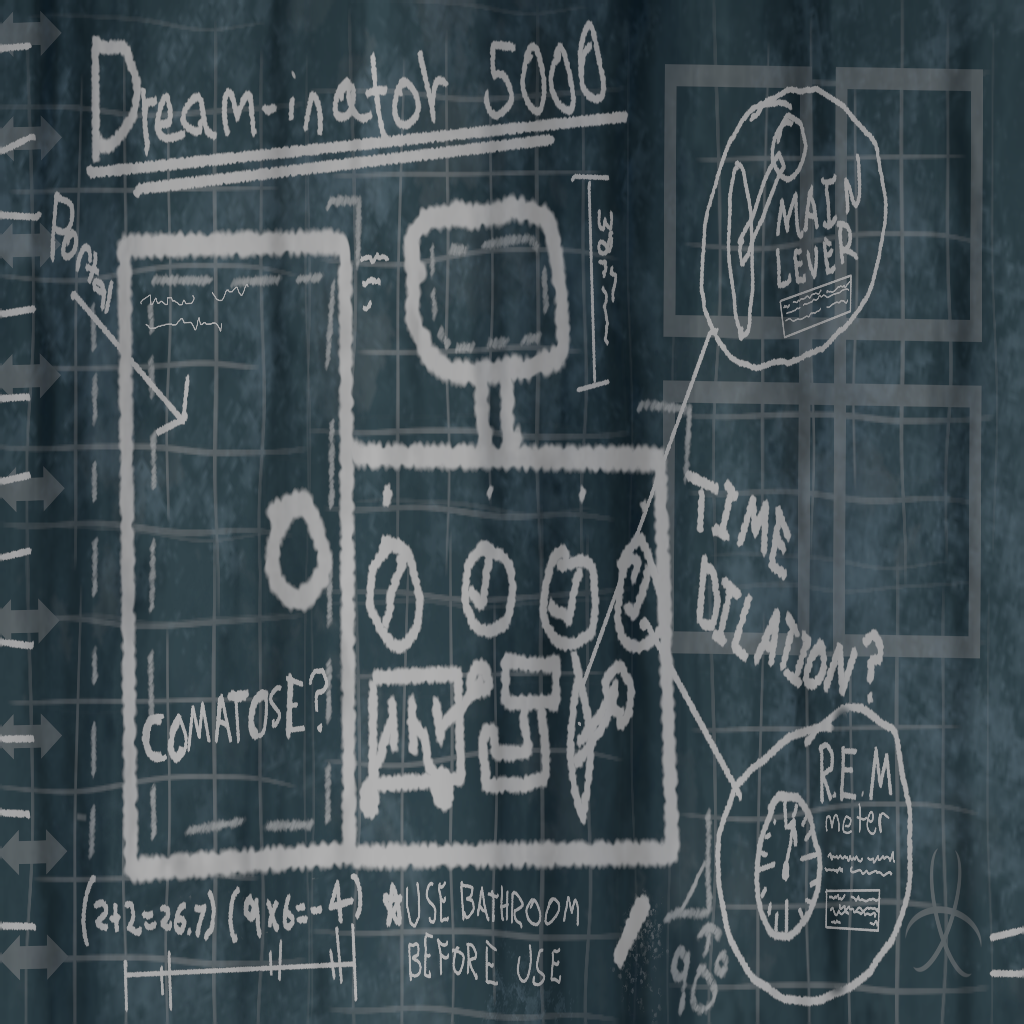 Dream-inator 5000
Portal
MAIN
LEVER
TIME
DILATION?
COMATOSE?
R.E.M
meter
(2+2=26.7) (9x6=-4)
★USE BATHROOM
BEFORE USE
90°